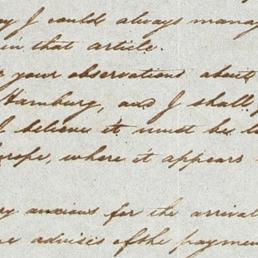 I could always manag
in that article.
your observations about
Hamburg, and I shall
believe it must be
where it appears
anxious for the arrival
advises of the paymen